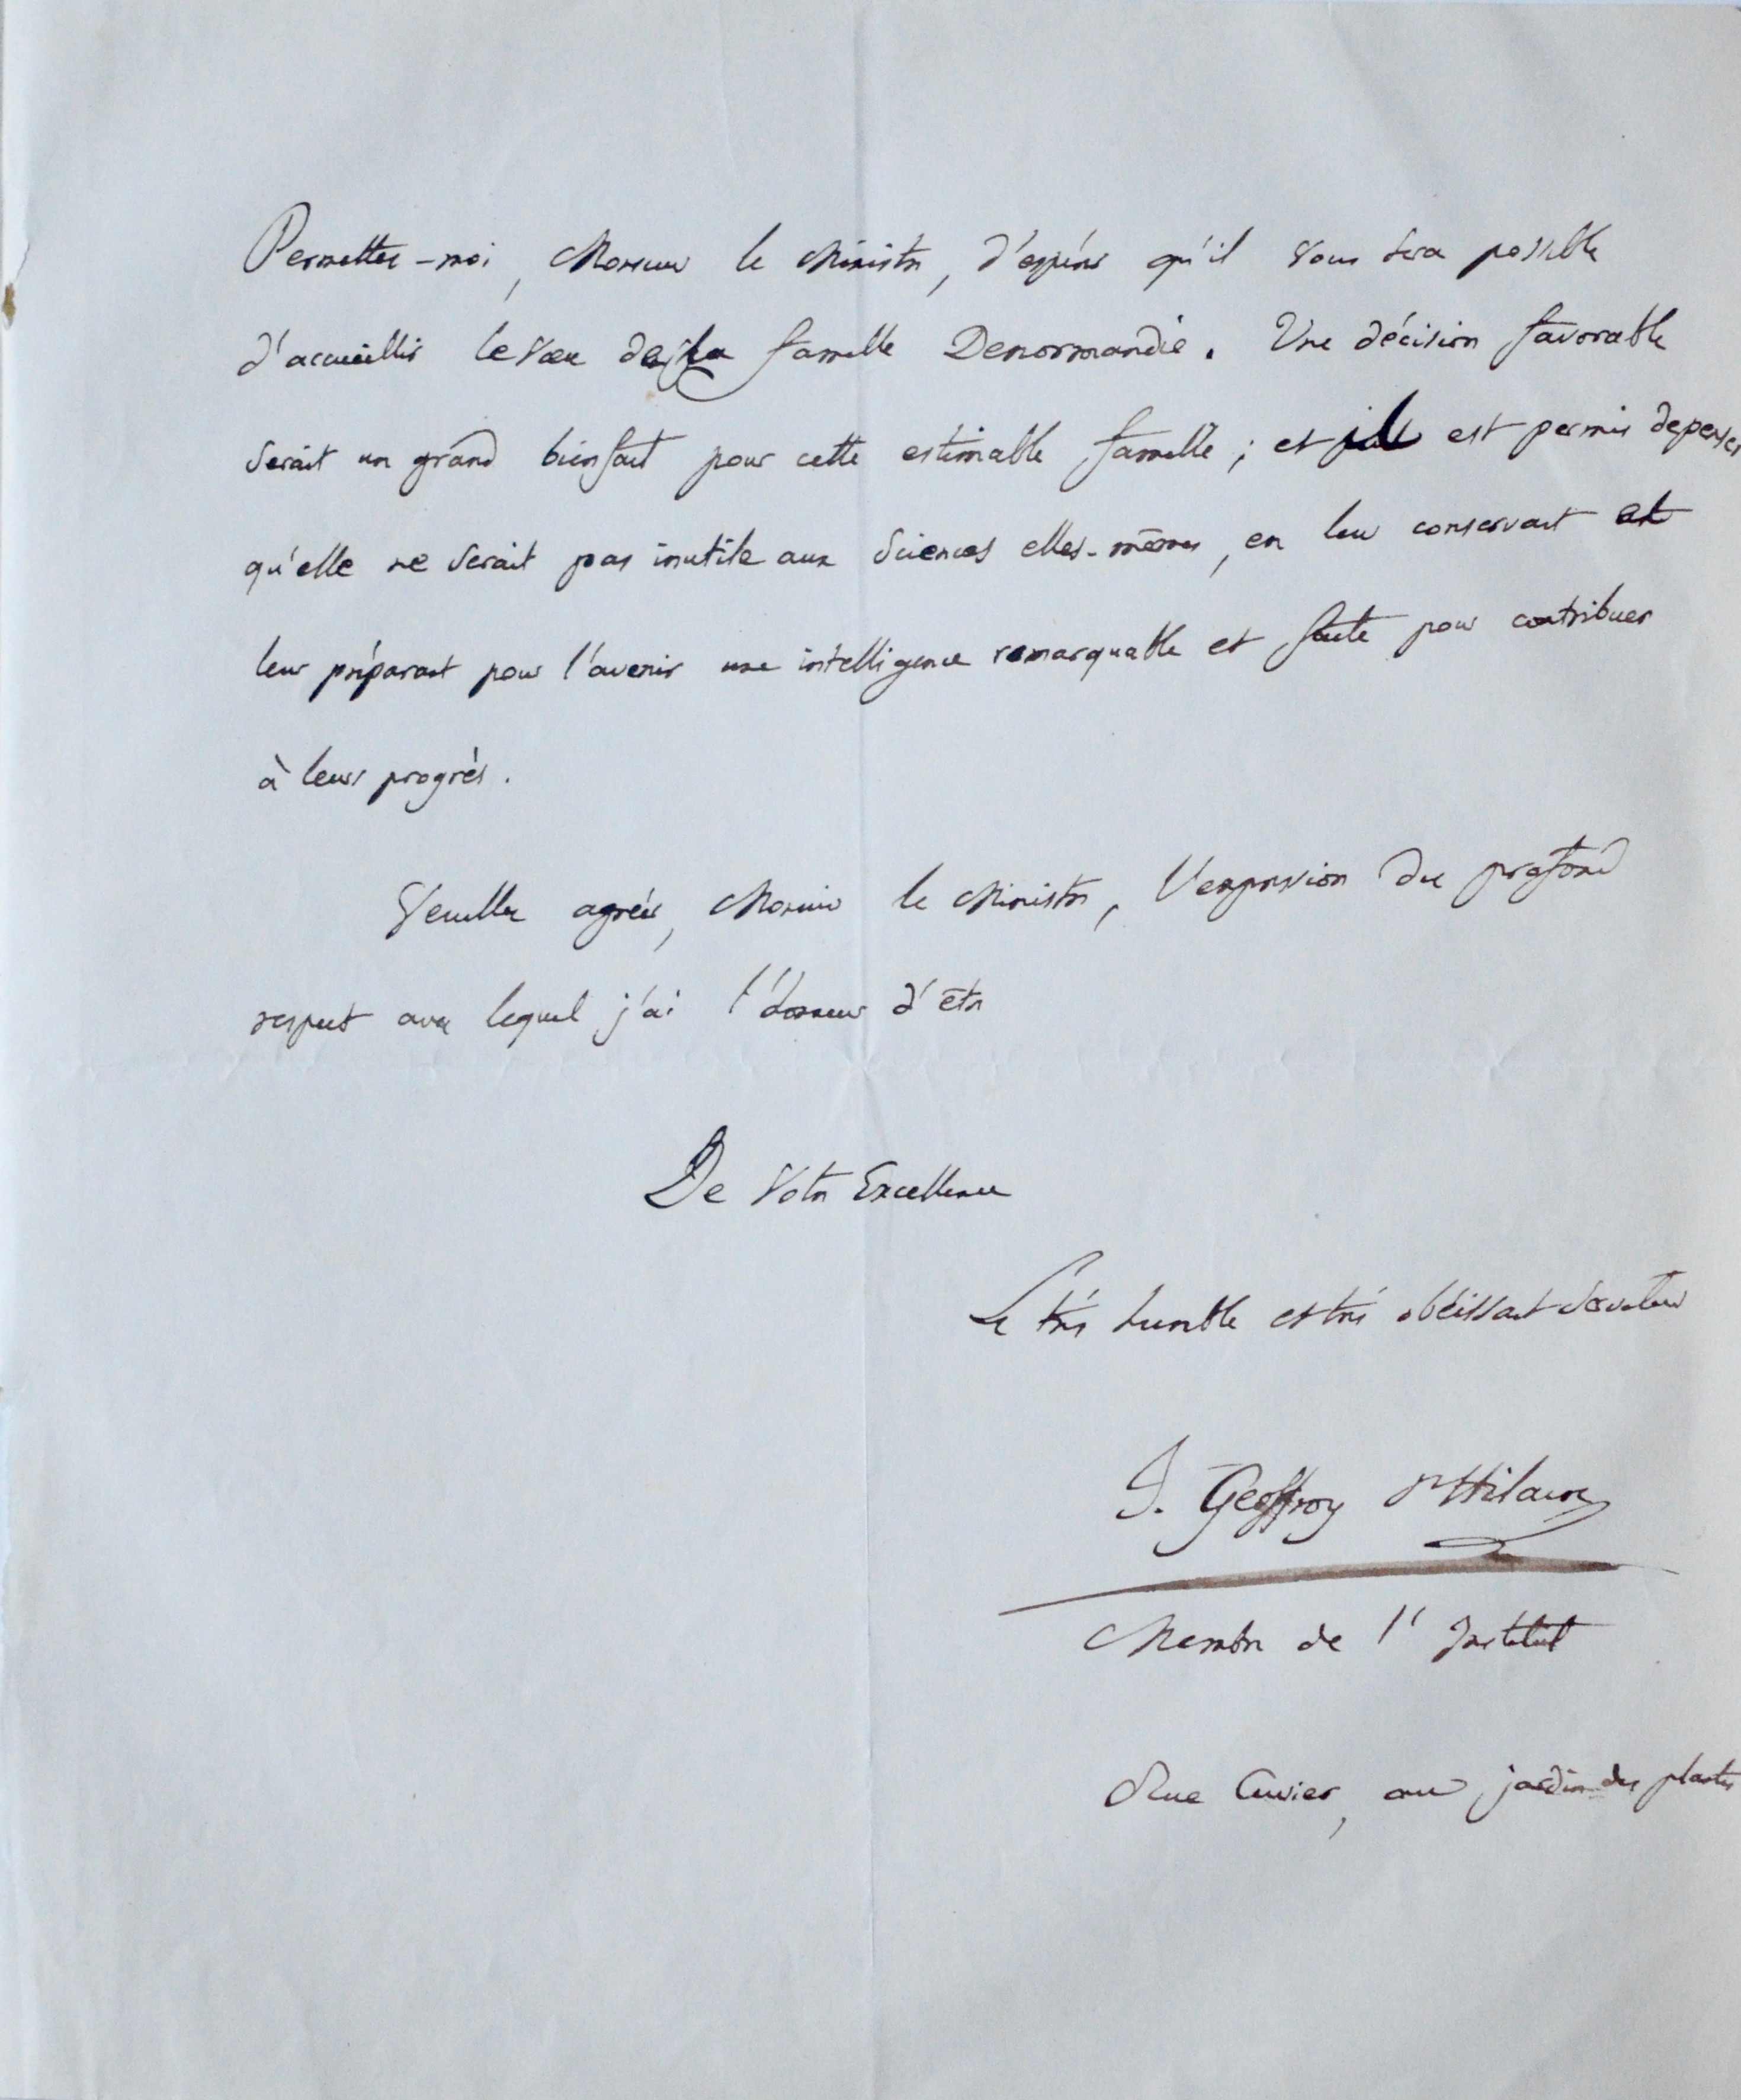 Permettez-moi, Monsieur le Ministre, d'espérer qu'il vous sera possible
d'accueillir le vœu de la famille Denormandie. Une décision favorable
serait un grand bienfait pour cette estimable famille ; et il est permis de penser
qu'elle ne serait pas inutile aux Sciences elles-mêmes, en leur conservant et
leur préparant pour l'avenir une intelligence remarquable et faite pour contribuer
à leurs progrès.
Veuillez agréer, Monsieur le Ministre, l'expression du profond
respect avec lequel j'ai l'honneur d'être
De Votre Excellence
Le très humble et très obéissant serviteur
I. Geoffroy St Hilaire
Membre de l'Institut
Rue Cuvier, au jardin des plantes